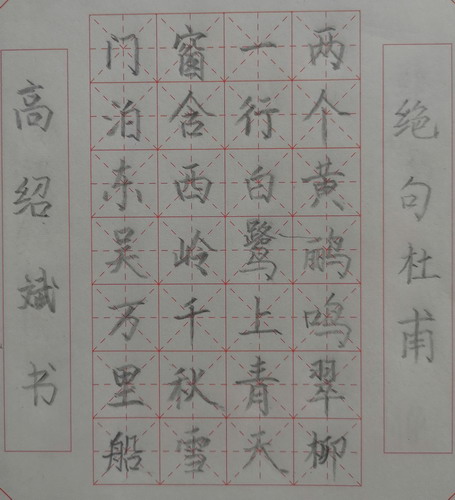 绝句杜甫
两个黄鹂鸣翠柳
一行白鹭上青天
窗含西岭千秋雪
门泊东吴万里船
高绍斌书